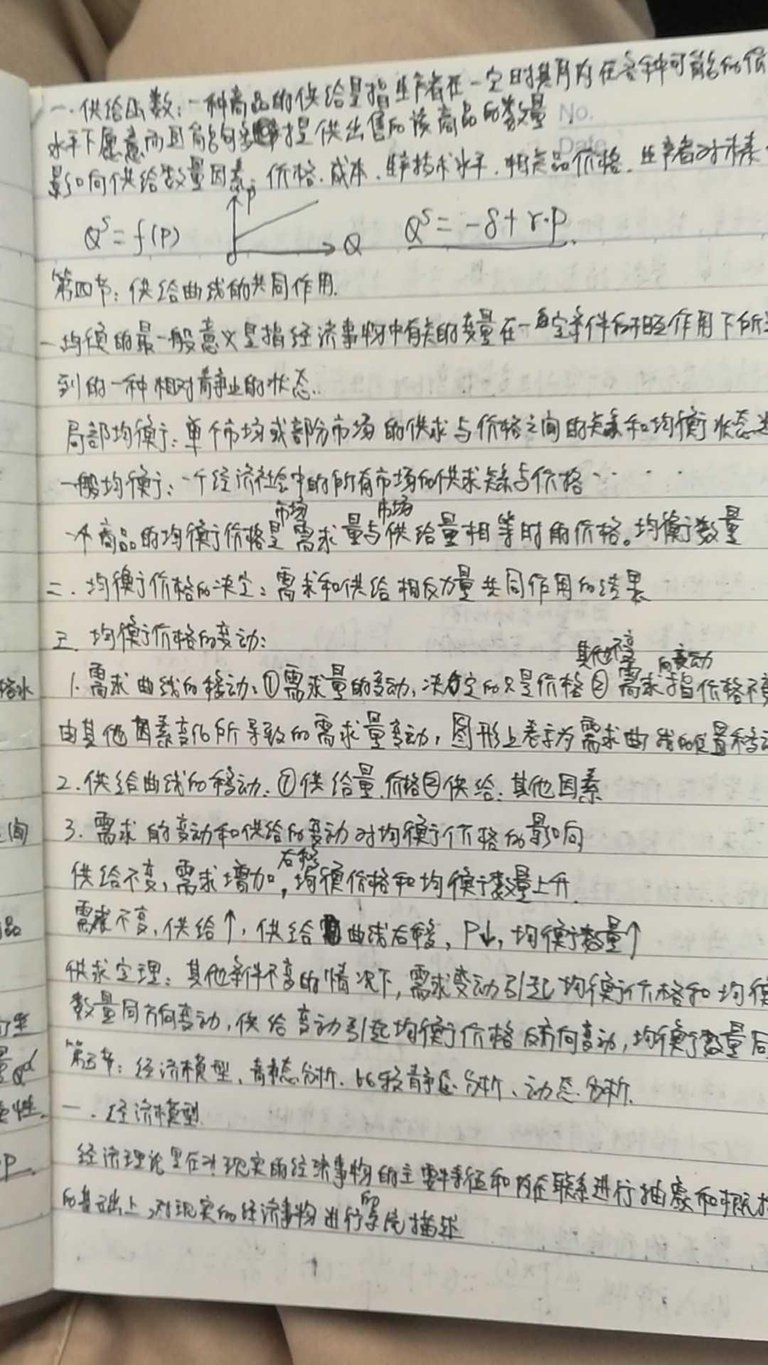 一.供给函数:一种商品的供给是指生产者在一定时期内在各种可能的价
水平下愿意而且能够提供出售的该商品的数量. No.
影响供给数量因素:价格.成本.生产技术水平.相关品价格.生产者对未来
Qˢ=f(P) P Q Qˢ=-δ+r·P
第四节:供给曲线的共同作用.
一均衡的最一般意义是指经济事物中有关的变量在一定条件的相互作用下所达
到的一种相对静止的状态.
局部均衡:单个市场或部分市场的供求与价格之间的关系和均衡状态
一般均衡:一个经济社会中的所有市场的供求关系与价格……
市场 市场
一个商品的均衡价格是需求量与供给量相等时的价格。均衡数量
二.均衡价格的决定:需求和供给相反力量共同作用的结果
三.均衡价格的变动:
其他不变 的变动
1.需求曲线的移动:①需求量的变动,决定的只是价格②需求指价格不变
由其他因素变化所导致的需求量变动,图形上表示为需求曲线的位置移动
2.供给曲线的移动:①供给量.价格②供给:其他因素
3.需求的变动和供给的变动对均衡价格的影响
右移
供给不变,需求增加,均衡价格和均衡数量上升.
需求不变,供给↑,供给曲线右移,P↓,均衡数量↑
供求定理:其他条件不变的情况下,需求变动引起均衡价格和均衡
数量同方向变动,供给变动引起均衡价格反方向变动,均衡数量同
第五节:经济模型、静态分析.比较静态分析、动态分析.
一.经济模型.
经济理论是在对现实的经济事物的主要特征和内在联系进行抽象和概括
的基础上,对现实的经济事物进行的系统描述
格水
间
品
Qᵈ
性.
P